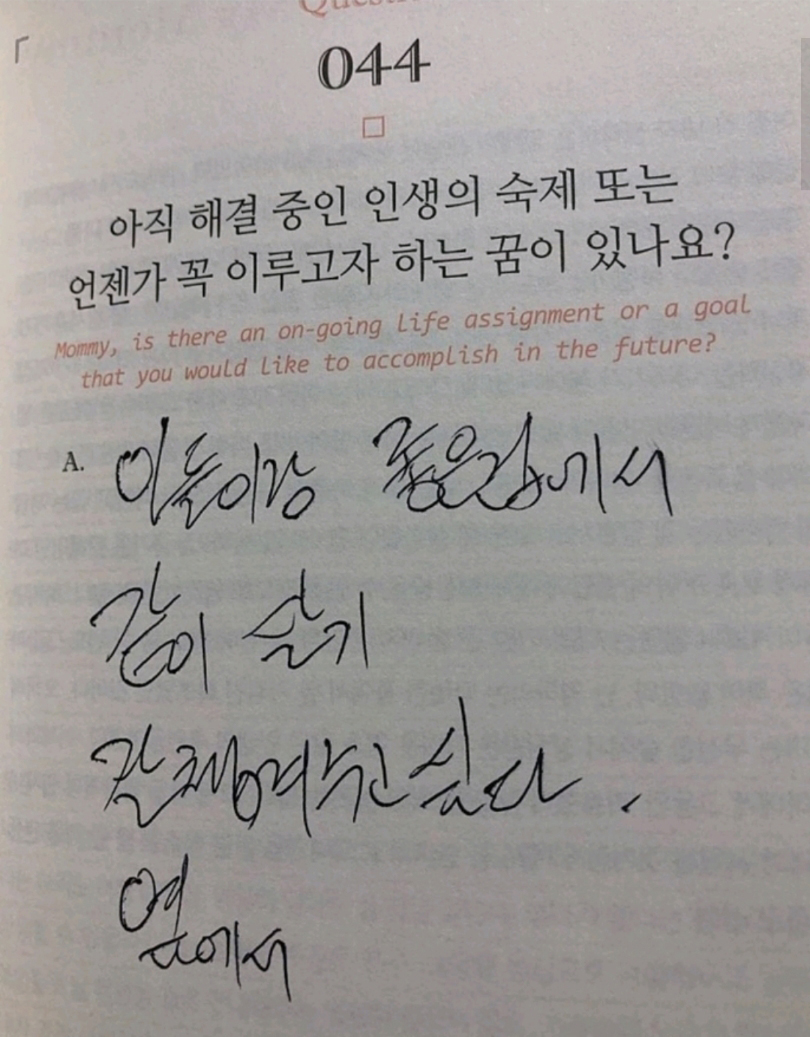 Questi
044
아직 해결 중인 인생의 숙제 또는
언젠가 꼭 이루고자 하는 꿈이 있나요?
Mommy, is there an on-going life assignment or a goal
that you would like to accomplish in the future?
A. 이들이랑 좋은집에서
같이 살기
잘 챙겨주고 싶다.
옆에서